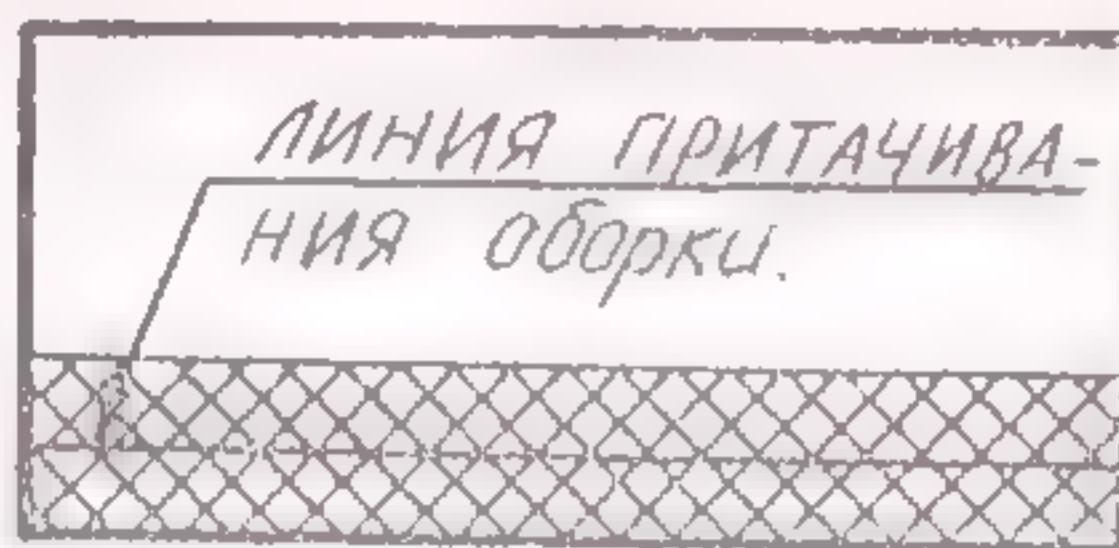 ЛИНИЯ ПРИТАЧИВА-
НИЯ оборки.